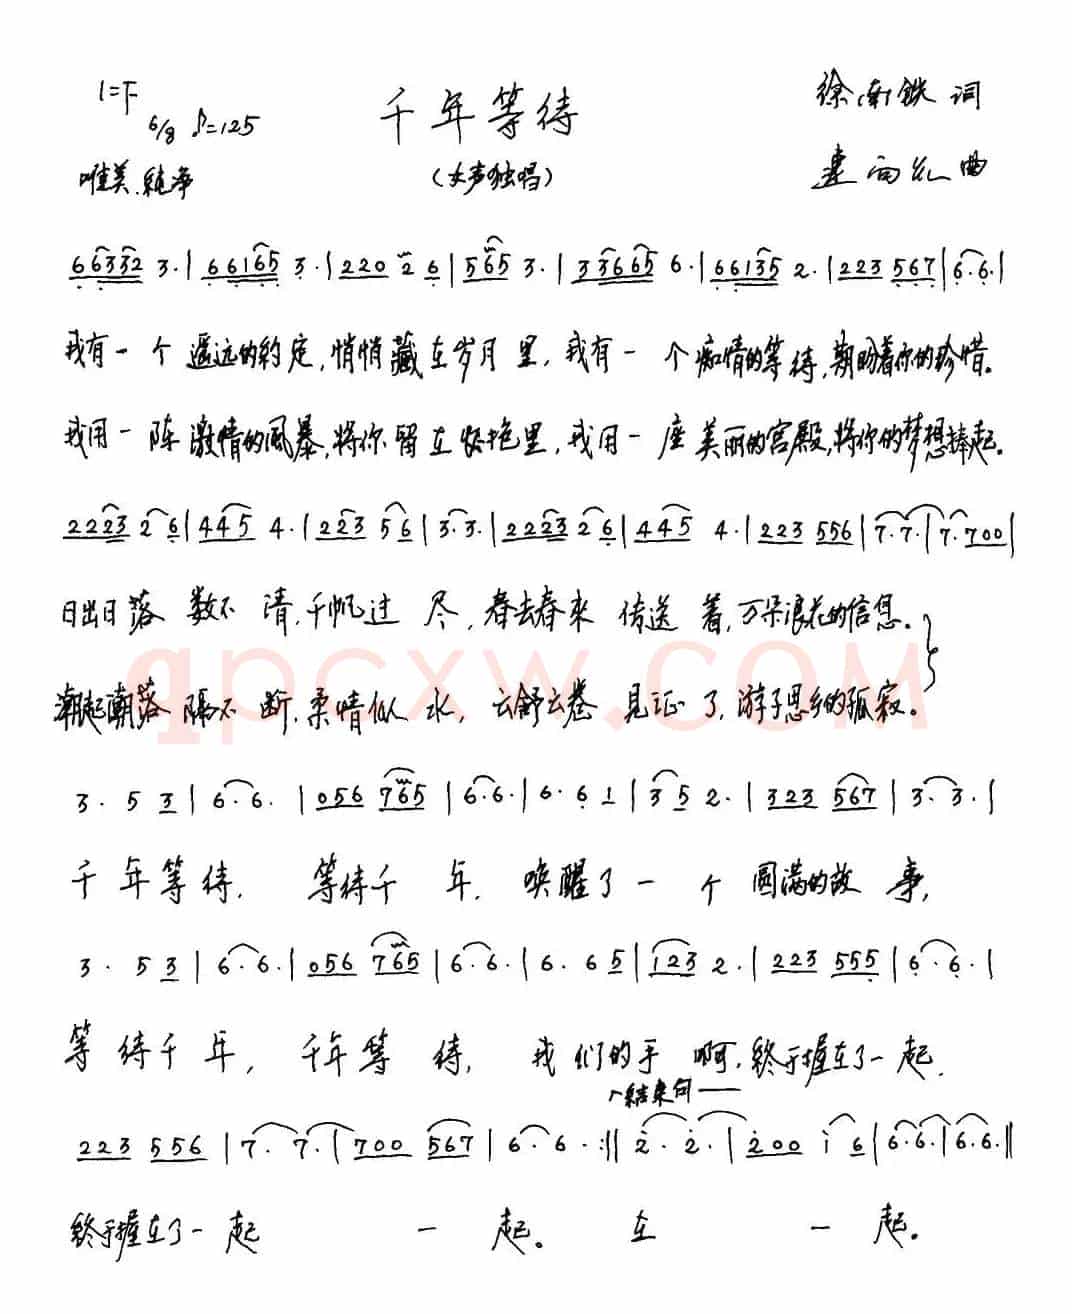 1=F
6/8 ♪=125
千年等待
徐南铁 词
唯美.纯净
(女声独唱)
连向红 曲
663332 3.|66165 3.|220 2 6|565 3.|33665 6.|66135 2.|223 567|6.6.|
我有一个遥远的约定,悄悄藏在岁月里,我有一个痴情的等待,期盼着你的珍惜。
我用一阵激情的风暴,将你留在怀抱里,我用一座美丽的宫殿,将你的梦想捧起。
2223 26|445 4.|223 56|3.3.|2223 26|445 4.|223 556|7.7.|7.700|
日出日落 数不清,千帆过尽,春去春来 传送着,万朵浪花的信息。
潮起潮落 隔不断,柔情似水,云舒云卷 见证了,游子思乡的孤寂。
qpcxw.com
3. 5 3|6.6.|056 765|6.6.|6.6 1|3 5 2.|323 567|3.3.|
千年等待. 等待千年. 唤醒了一个圆满的故事,
3. 5 3|6.6.|056 765|6.6.|6. 6 5|123 2.|223 555|6.6.|
等待千年, 千年等待, 我们的手啊,终于握在了一起.
结束句——
223 556|7.7.|700 567|6.6.:||2.2.|200 1 6|6.6.|6.6.||
终于握在了一起 一起。 在 一 起。